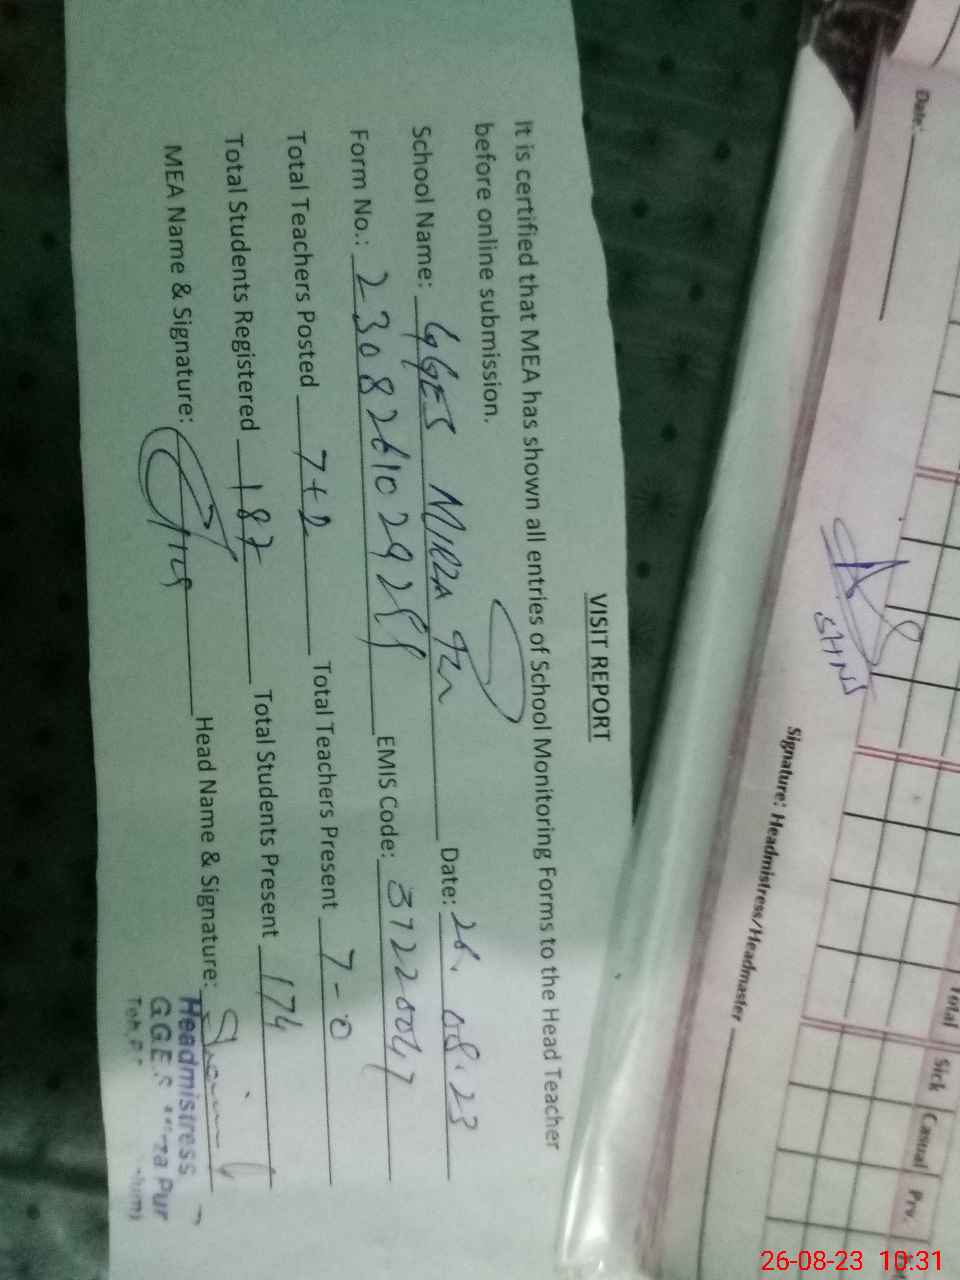 VISIT REPORT
It is certified that MEA has shown all entries of School Monitoring Forms to the Head Teacher
before online submission.
School Name: GGES MIRZA Date: 26.08.23
Form No.: EMIS Code: 37220047
Total Teachers Posted 7+2 Total Teachers Present 7-0
Total Students Registered 187 Total Students Present 174
MEA Name & Signature: Head Name & Signature:
Headmistress
GGES Pur
Date:
Signature: Headmistress/Headmaster
Total Sick Casual Prv.
26-08-23 10:31